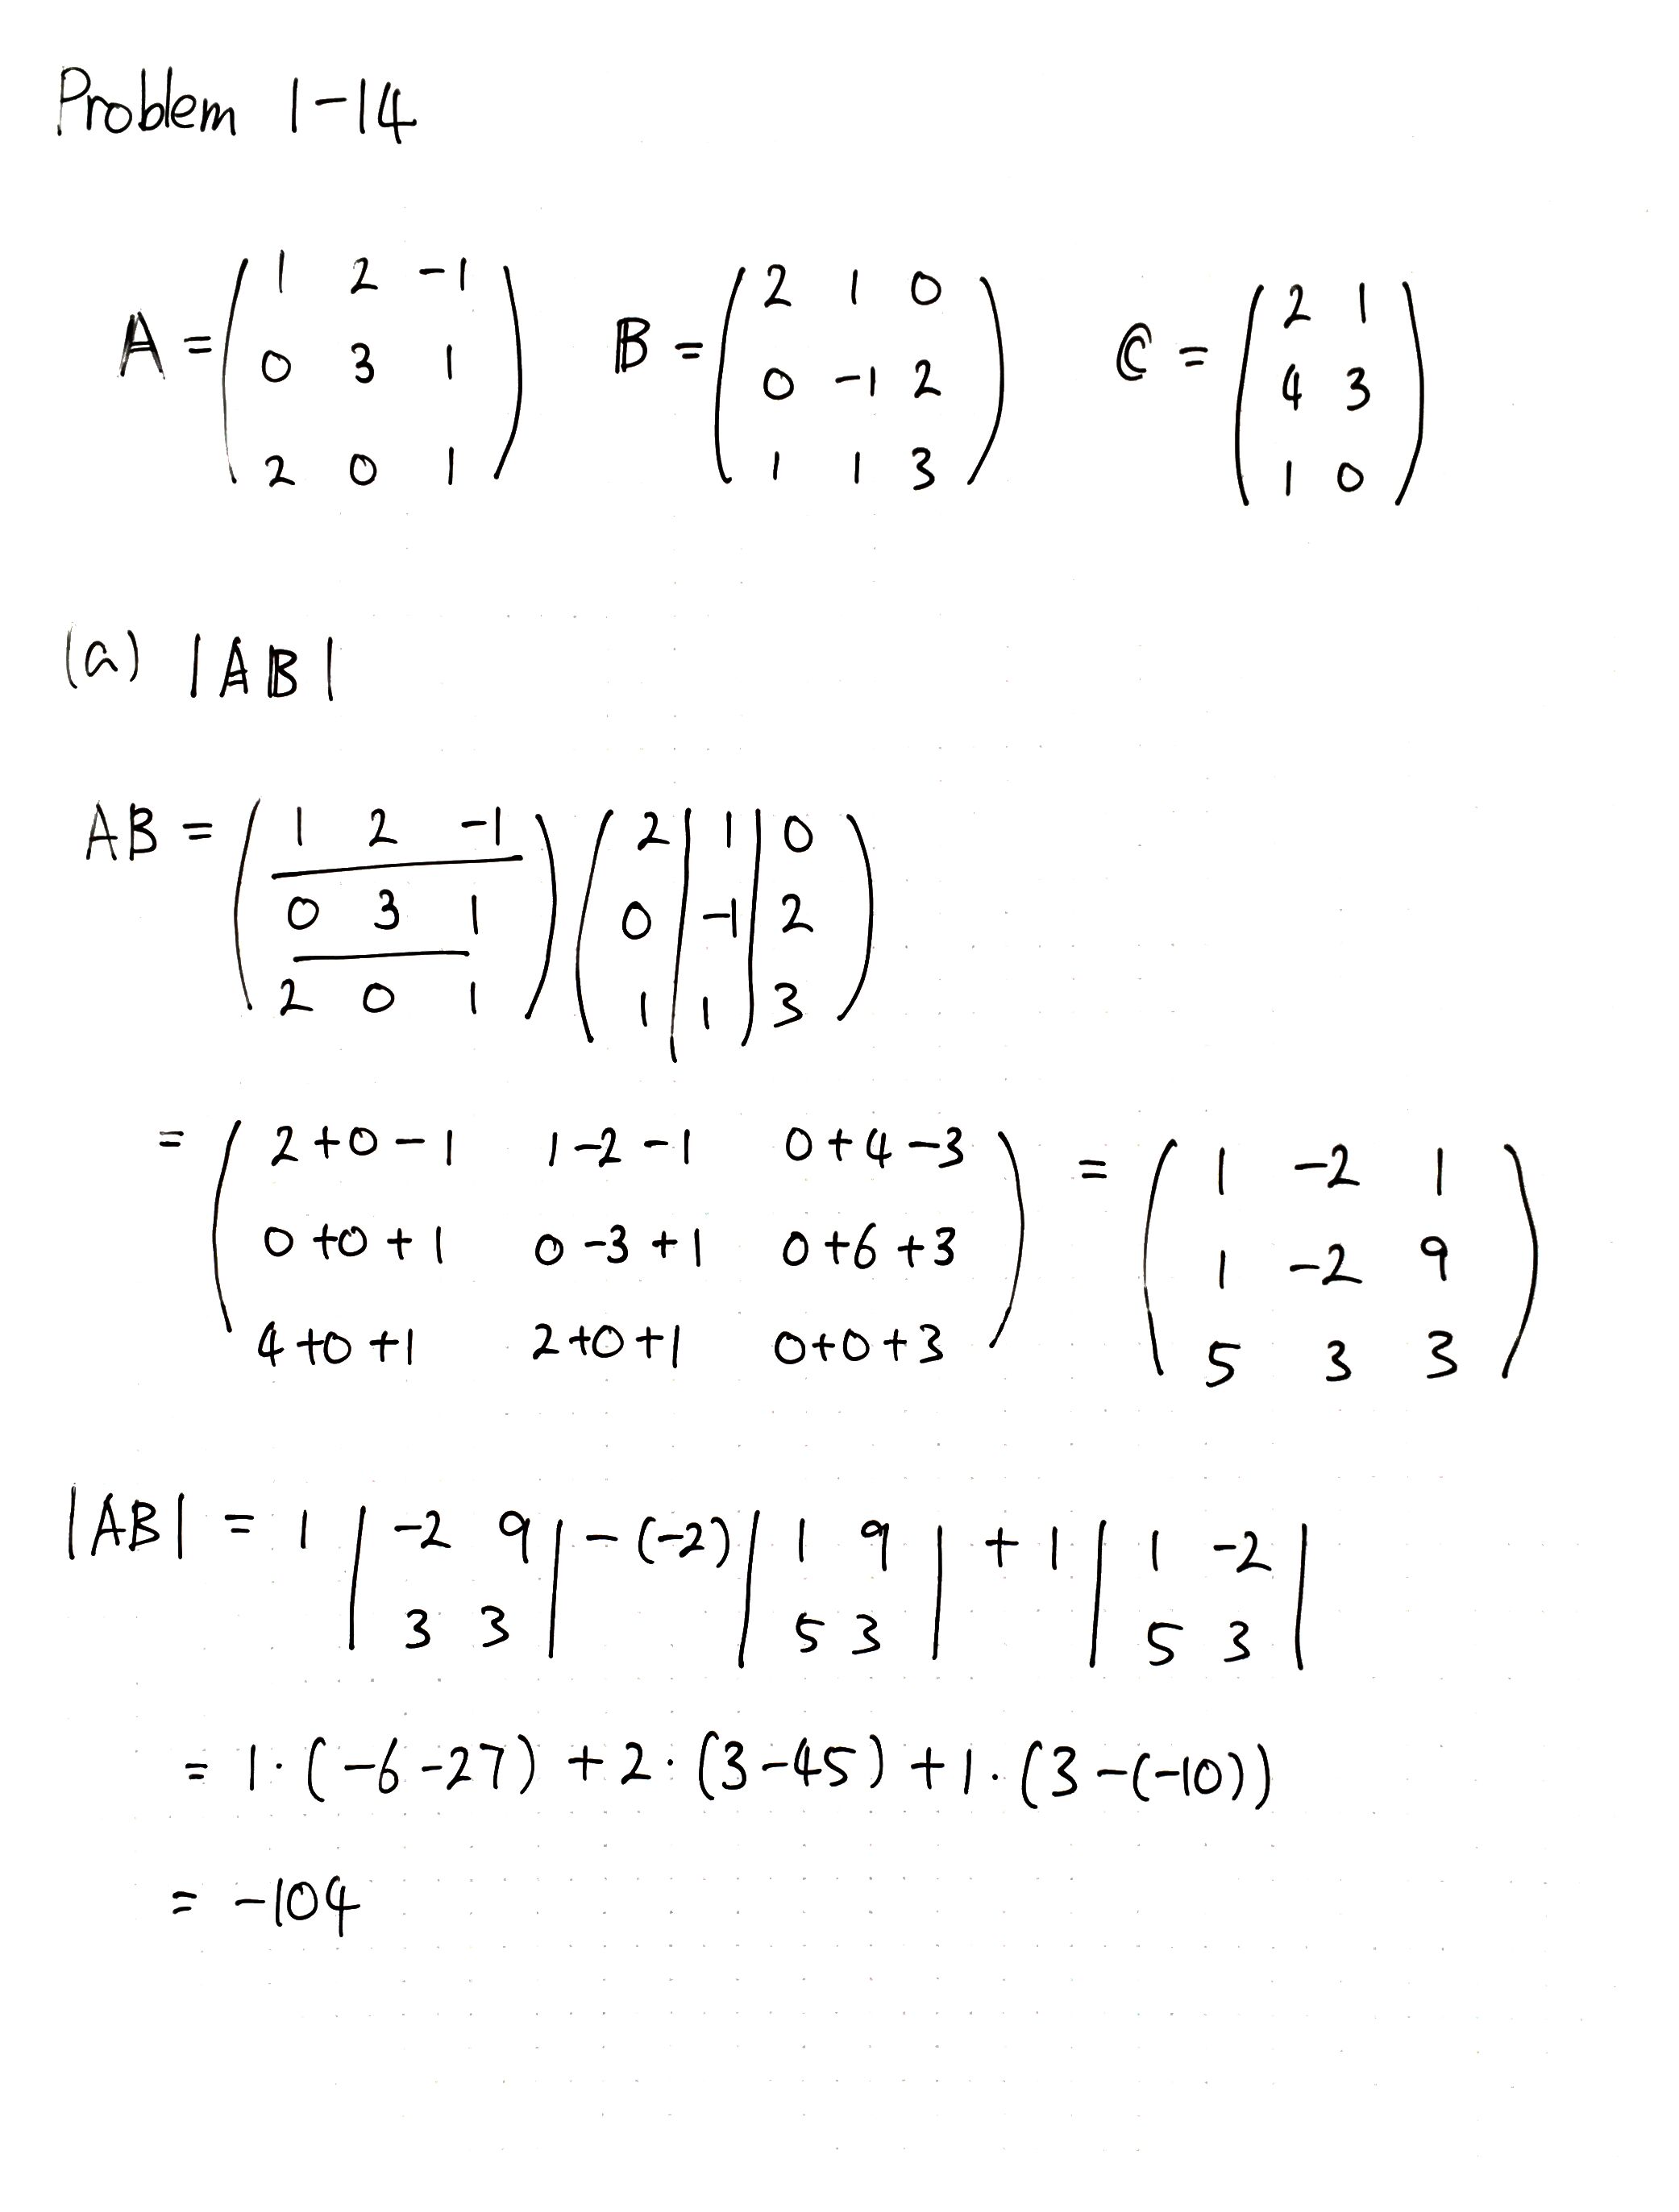 Problem 1-14
A = ( 1 2 -1 ; 0 3 1 ; 2 0 1 ) B = ( 2 1 0 ; 0 -1 2 ; 1 1 3 ) C = ( 2 1 ; 4 3 ; 1 0 )
(a) |AB|
AB = ( 1 2 -1 ; 0 3 1 ; 2 0 1 ) ( 2 | 1 | 0 ; 0 | -1 | 2 ; 1 | 1 | 3 )
= ( 2+0-1 1-2-1 0+4-3 ; 0+0+1 0-3+1 0+6+3 ; 4+0+1 2+0+1 0+0+3 ) = ( 1 -2 1 ; 1 -2 9 ; 5 3 3 )
|AB| = 1 | -2 9 ; 3 3 | - (-2) | 1 9 ; 5 3 | + 1 | 1 -2 ; 5 3 |
= 1·(-6-27) +2·(3-45) +1·(3-(-10))
= -104